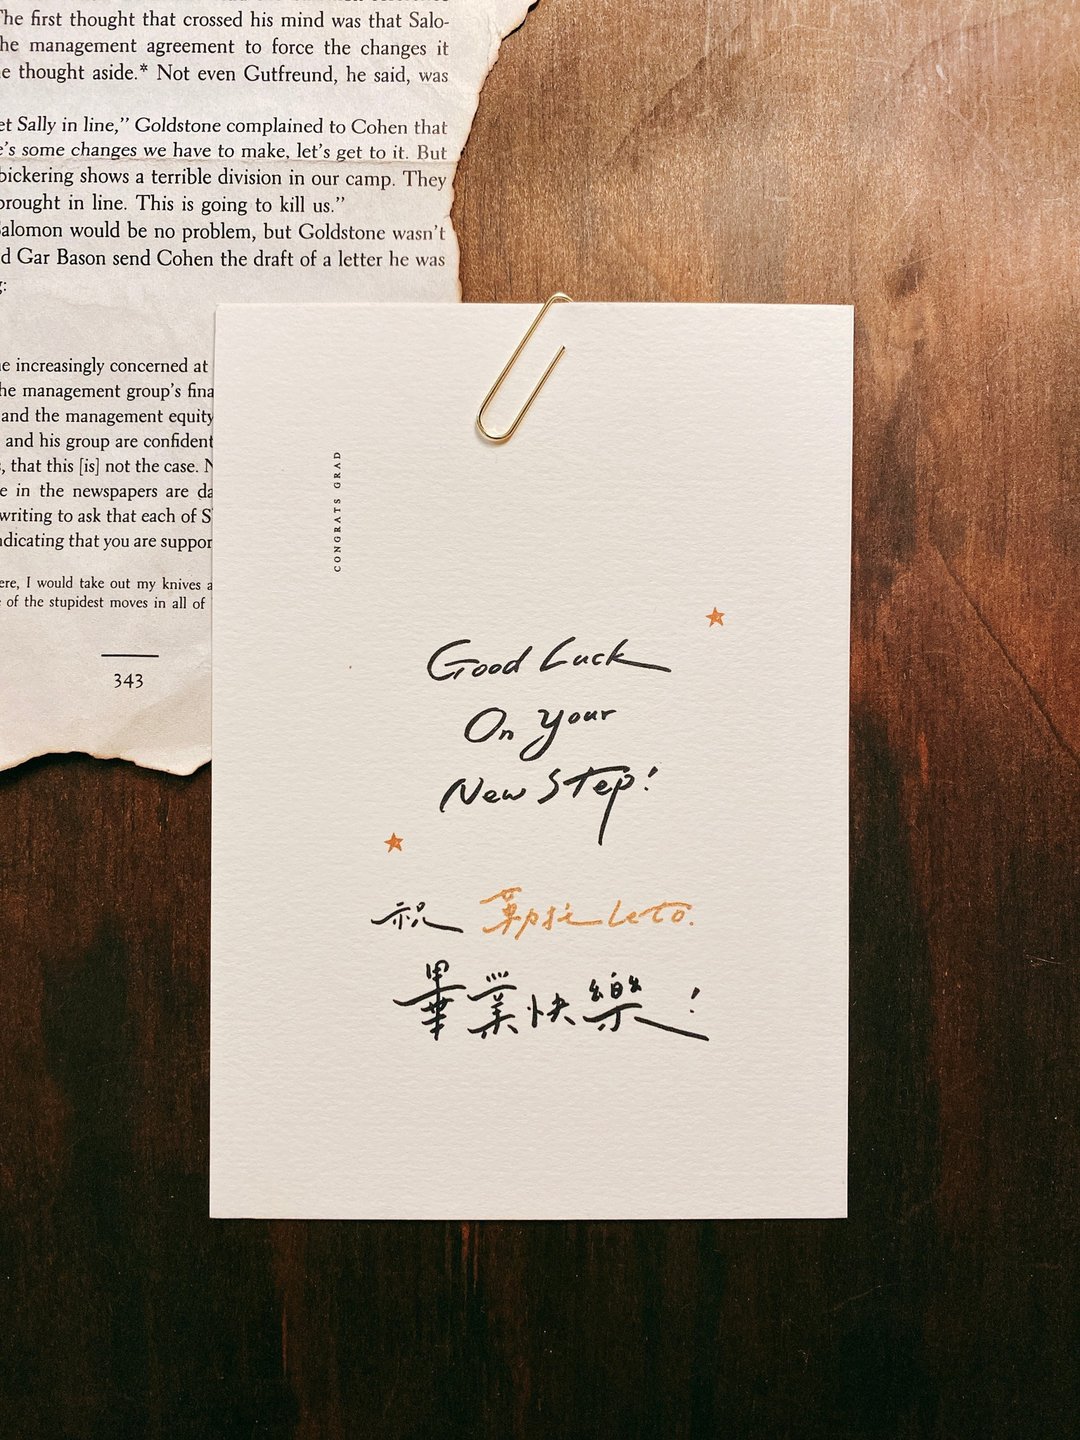 The first thought that crossed his mind was that Salo-
he management agreement to force the changes it
e thought aside.* Not even Gutfreund, he said, was
et Sally in line,” Goldstone complained to Cohen that
e’s some changes we have to make, let’s get to it. But
bickering shows a terrible division in our camp. They
brought in line. This is going to kill us.”
Salomon would be no problem, but Goldstone wasn’t
d Gar Bason send Cohen the draft of a letter he was
g:
e increasingly concerned at
he management group’s fina
and the management equity
and his group are confident
, that this [is] not the case. N
e in the newspapers are da
writing to ask that each of S
ndicating that you are suppor
ere, I would take out my knives a
e of the stupidest moves in all of
343
CONGRATS GRAD
Good Luck
On Your
New Step!
祝 勒托 Leto.
畢業快樂!